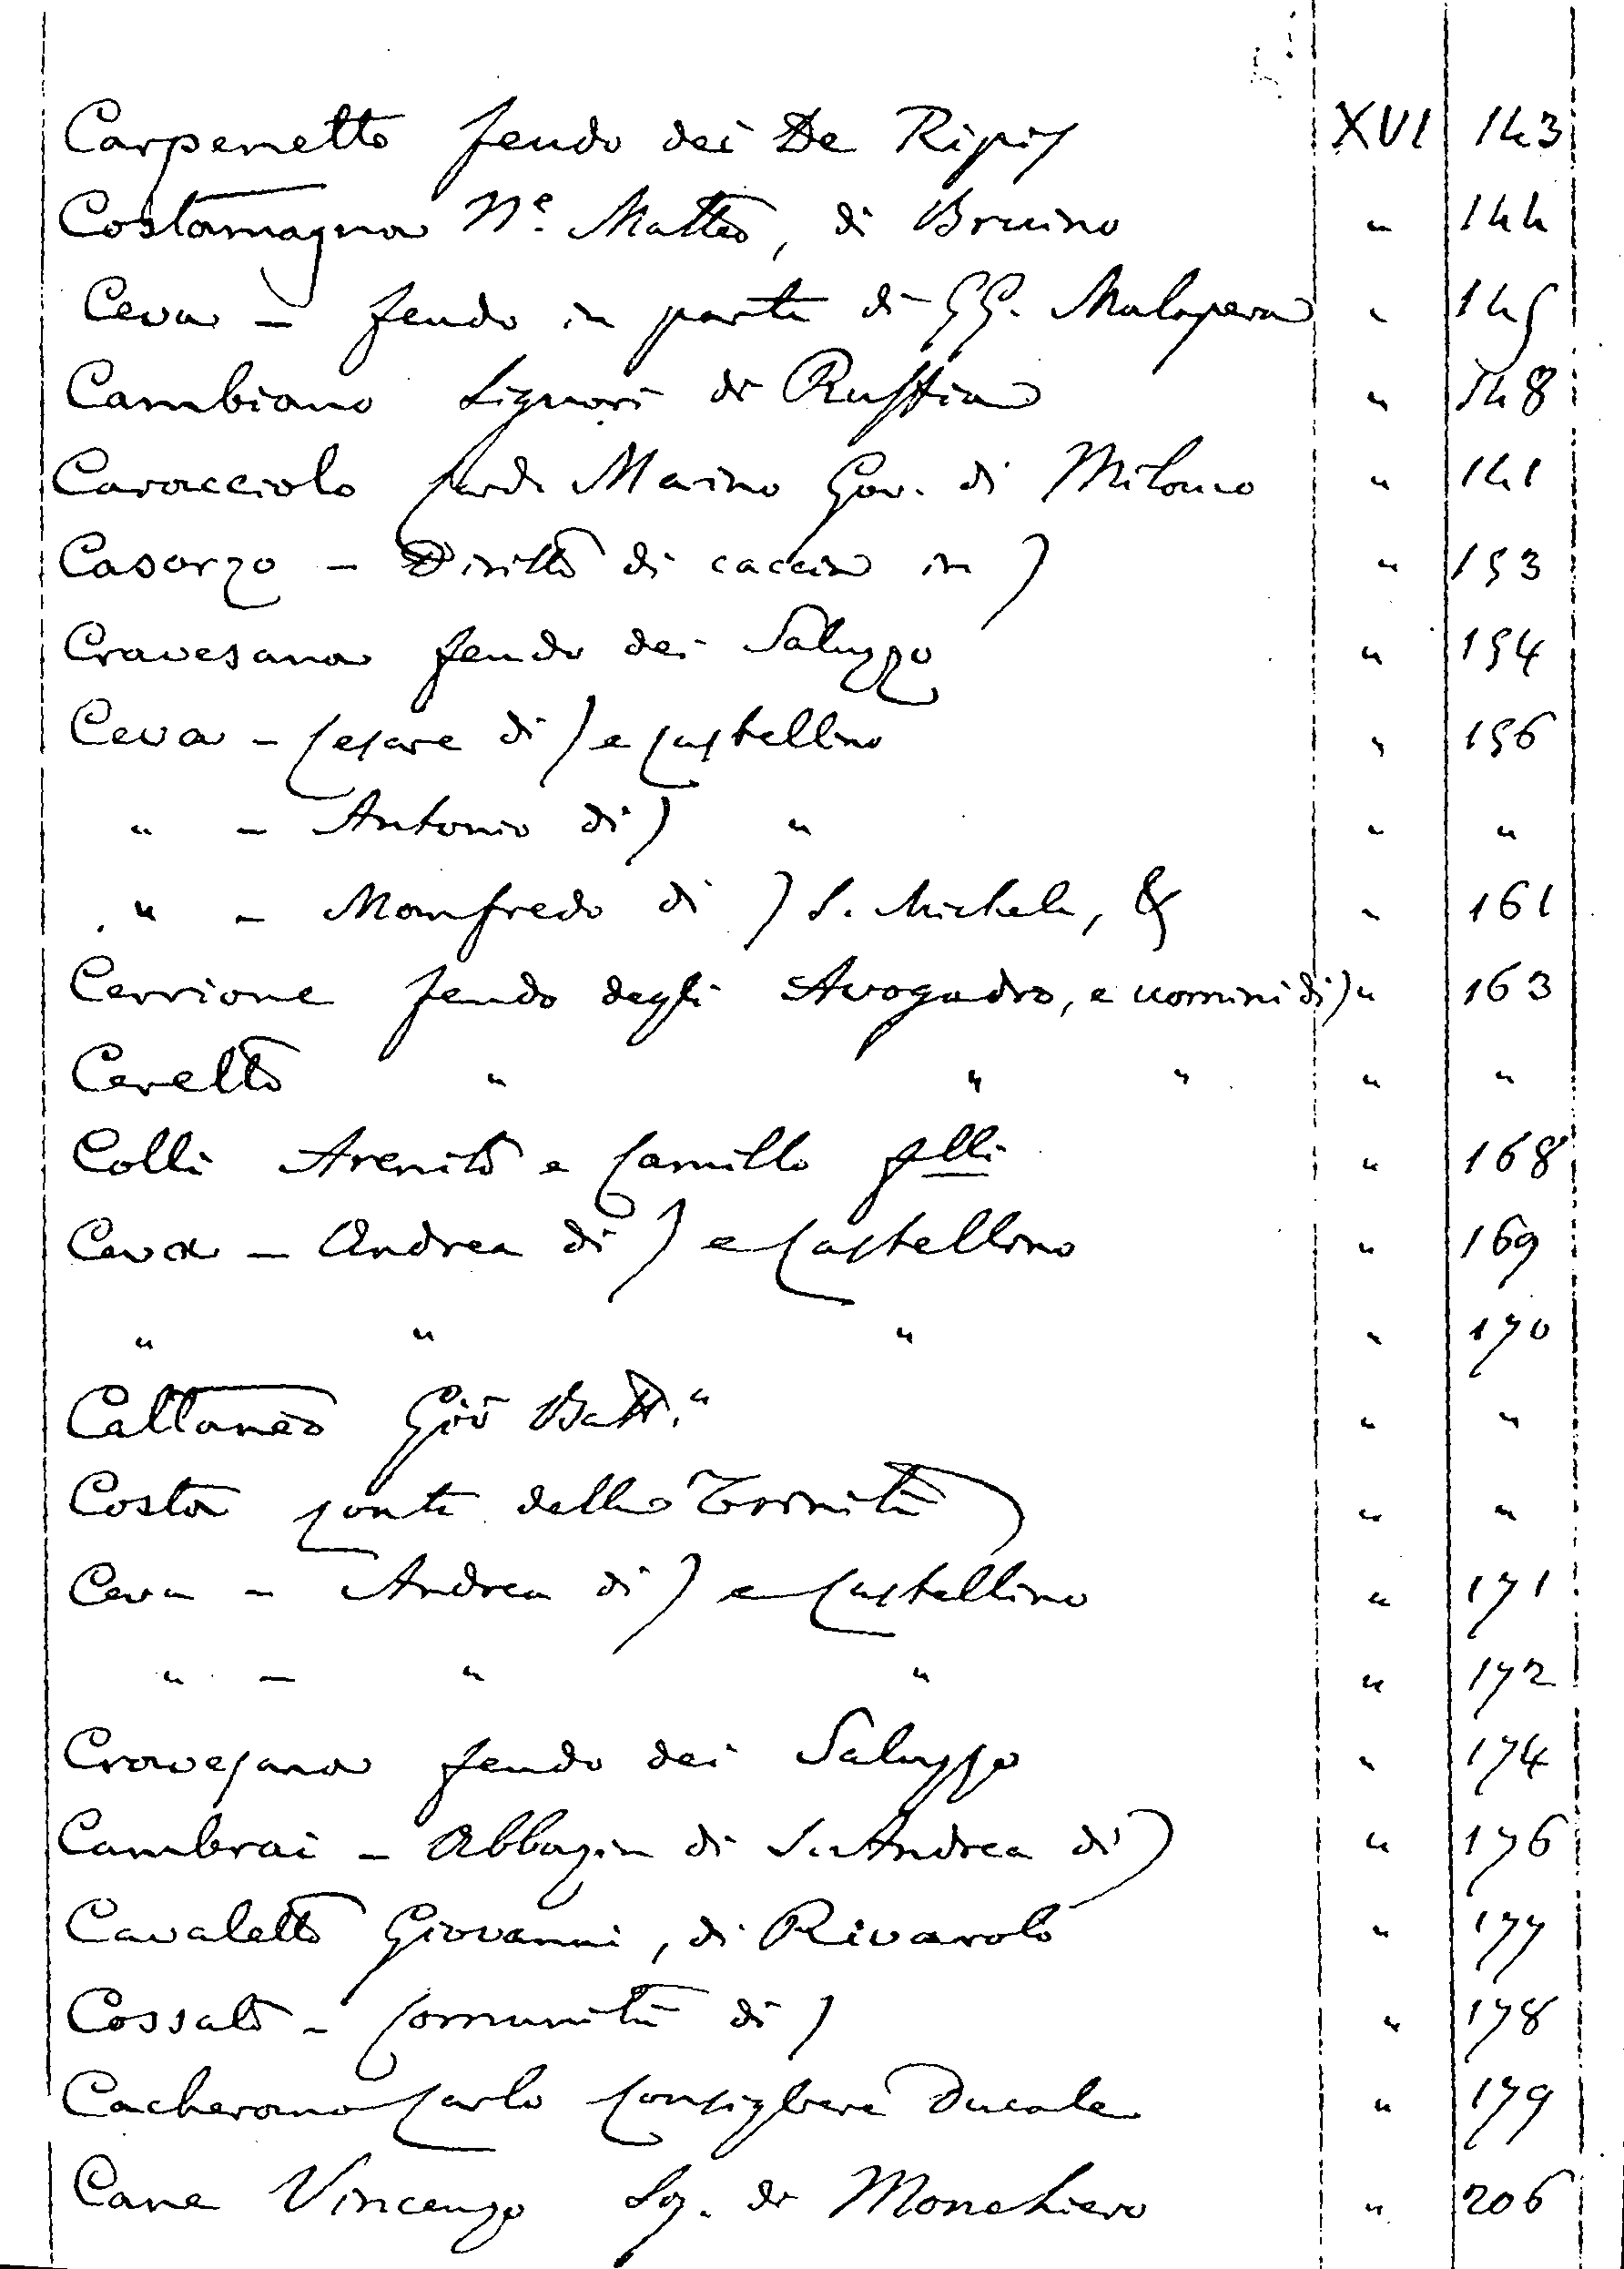 Carpenetto feudo dei De Ripis XVI 143
Costamagna Ne. Matteo, di Bruino " 144
Ceva - feudo in parte di GG. Malapera " 145
Cambiano Signori di Ruffia " 148
Caracciolo Card. Marino Gov. di Milano " 141
Casorzo - Diritto di caccia in) " 153
Cravesana feudo dei Saluzzo " 154
Ceva - Cesare di) e Castellino " 156
" - Antonio di) " " "
" - Manfredo di) S. Michele, & " 161
Cerrione feudo degli Avogadro, e uomini di) " 163
Ceretto " " " " "
Colli Arenito e Camillo flli " 168
Ceva - Andrea di) e Castellino " 169
" " " " 170
Cattaneo Gio Batt.a " "
Costa Conte della Trinità " "
Ceva - Andrea di) e Castellino " 171
" - " " " 172
Cravesana feudo dei Saluzzo " 174
Cambrai - Abbazia di S. Andrea di) " 176
Cavaletto Giovanni, di Rivarolo " 177
Cossato - Comunità di) " 178
Cacherano Carlo Consigliere Ducale " 179
Cane Vincenzo Sig. di Monchiero " 206